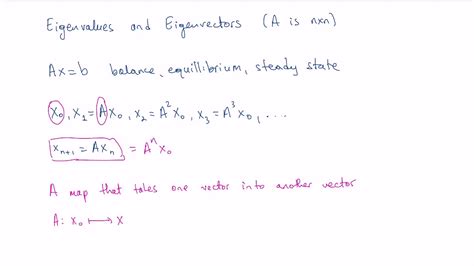 Eigenvalues and Eigenvectors (A is n×n)
Ax=b balance, equilibrium, steady state
x₀, x₁=Ax₀, x₂=A²x₀, x₃=A³x₀, ...
xₙ₊₁ = Axₙ = Aⁿx₀
A map that takes one vector into another vector
A: x₀ ⟼ x